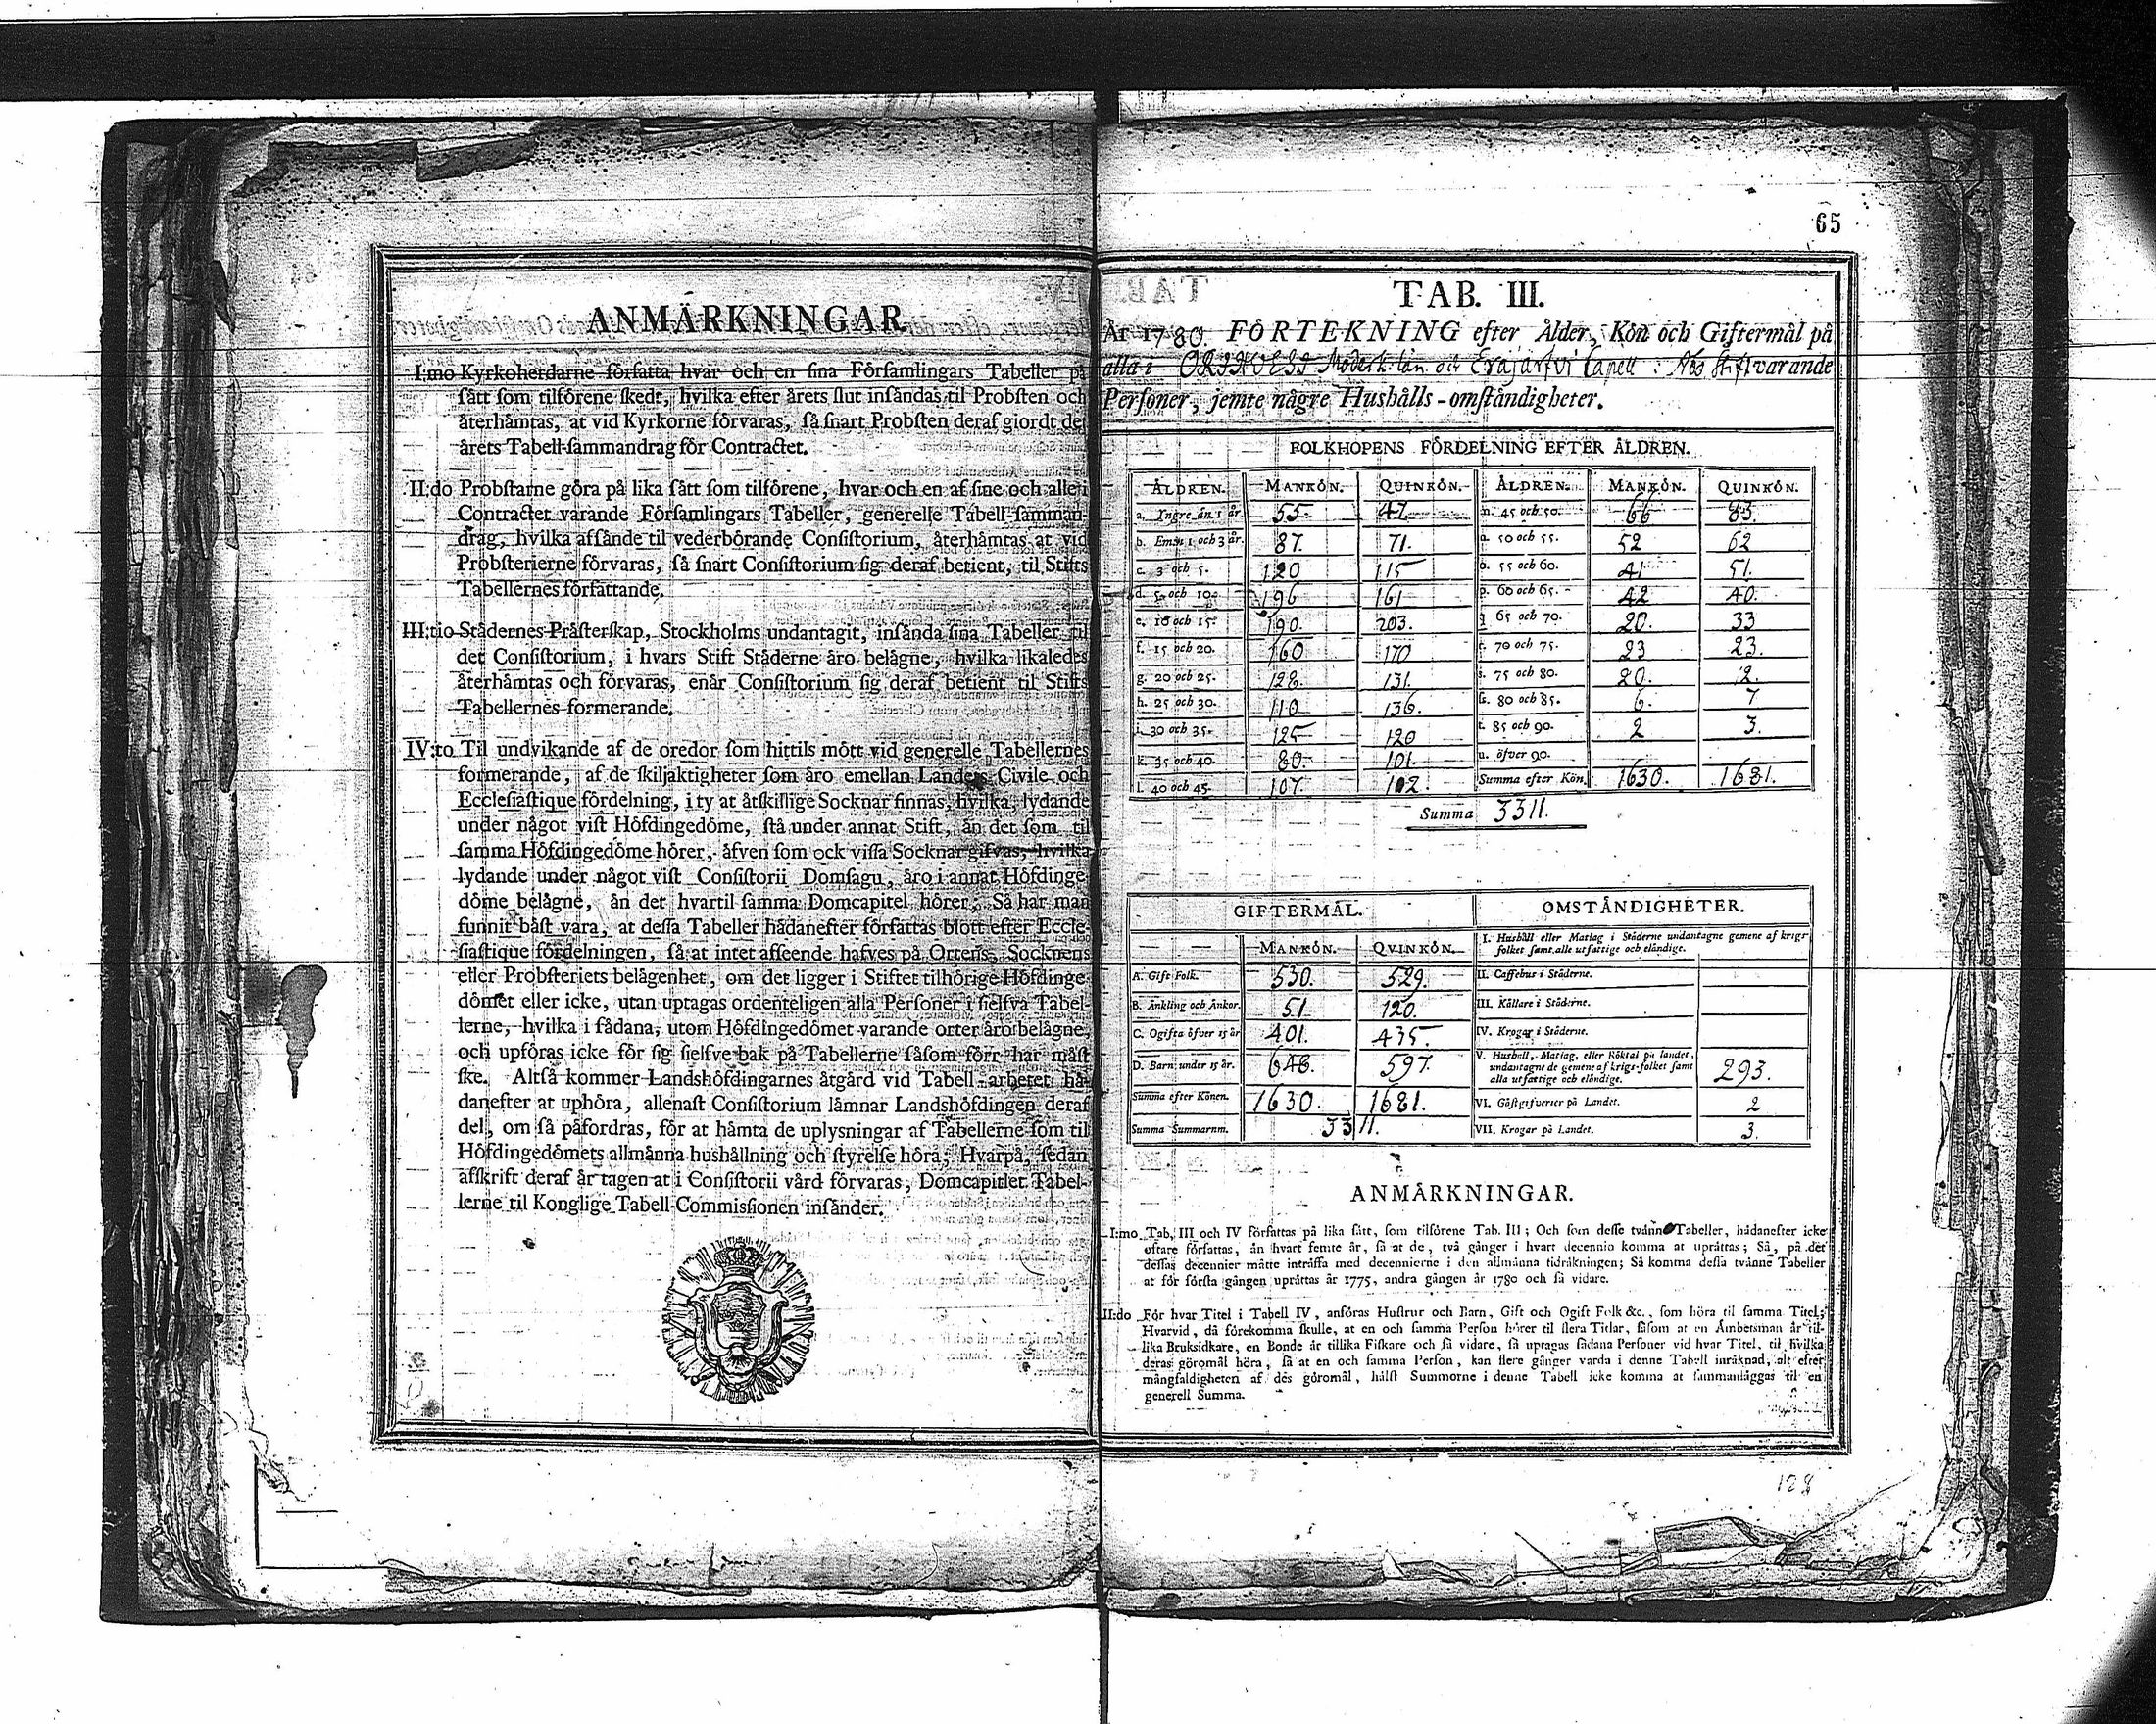 ANMÄRKNINGAR.
I:mo Kyrkoherdarne författa hvar och en sina Församlingars Tabeller på
sätt som tilförene skedt, hvilka efter årets slut insändas til Probsten och
återhämtas, at vid Kyrkorne förvaras, så snart Probsten deraf giordt det
årets Tabell-sammandrag för Contractet.
II:do Probstarne göra på lika sätt som tilförene, hvar och en af sine och alle i
Contractet varande Församlingars Tabeller, generelle Tabell-samman-
drag, hvilka afsände til vederbörande Consistorium, återhämtas at vid
Probsterierne förvaras, så snart Consistorium sig deraf betient, til Stifts
Tabellernes författande.
III:tio Städernes Prästerskap, Stockholms undantagit, insända sina Tabeller til
det Consistorium, i hvars Stift Städerne äro belägne, hvilka likaledes
återhämtas och förvaras, enär Consistorium sig deraf betient til Stifts
Tabellernes formerande.
IV:to Til undvikande af de oredor som hittils mött vid generelle Tabellernes
formerande, af de skiljaktigheter som äro emellan Landets Civile och
Ecclesiastique fördelning, i ty at åtskillige Socknar finnas, hvilka, lydande
under något vist Höfdingedöme, stå under annat Stift, än det som til
samma Höfdingedöme hörer, äfven som ock vissa Socknar gifvas, hvilka
lydande under något vist Consistorii Domsagu, äro i annat Höfdinge-
döme belägne, än det hvartil samma Domcapitel hörer; Så har man
funnit bäst vara, at dessa Tabeller hädanefter författas blott efter Eccle-
siastique fördelningen, så at intet afseende hafves på Ortens, Socknens
eller Probsteriets belägenhet, om det ligger i Stiftet tilhörige Höfdinge-
dömet eller icke, utan uptagas ordenteligen alla Personer i sielfva Tabel-
lerne, hvilka i sådana, utom Höfdingedömet varande orter äro belägne,
och upföras icke för sig sielfve bak på Tabellerne såsom förr har måst
ske. Altså kommer Landshöfdingarnes åtgärd vid Tabell-arbetet hä-
danefter at uphöra, allenast Consistorium lämnar Landshöfdingen deraf
del, om så påfordras, för at hämta de uplysningar af Tabellerne som til
Höfdingedömets allmänna hushållning och styrelse höra; Hvarpå, sedan
afskrift deraf är tagen at i Consistorii vård förvaras, Domcapitlet Tabel-
lerne til Konglige Tabell-Commissionen insänder.
65
TAB. III.
År 1780. FÖRTEKNING efter Ålder, Kön och Giftermål på
alla i ORIHVESI Moderk:län och Erajärfvi Capell: Åbo Stift varande
Personer, jemte någre Hushålls-omständigheter.
FOLKHOPENS FÖRDELNING EFTER ÅLDREN.
ÅLDREN. MANKÖN. QUINKÖN. ÅLDREN. MANKÖN. QUINKÖN.
a. Yngre än 1 år 55. 47. m. 45 och 50. 66 83.
b. Em:n 1 och 3 år. 87. 71. n. 50 och 55. 52 62
c. 3 och 5. 120 115 o. 55 och 60. 41 51.
d. 5 och 10. 196 161 p. 60 och 65. 42 40.
e. 10 och 15. 190. 203. q. 65 och 70. 20. 33
f. 15 och 20. 160 170 r. 70 och 75. 23 23.
g. 20 och 25. 128. 131. s. 75 och 80. 20. 2.
h. 25 och 30. 110 136. ſs. 80 och 85. 6. 7
i. 30 och 35. 125 120 t. 85 och 90. 2 3.
k. 35 och 40. 80. 101. u. öfver 90.
l. 40 och 45. 107. 102. Summa efter Kön. 1630. 1681.
Summa 3311.
GIFTERMÅL. OMSTÄNDIGHETER.
MANKÖN. QVINKÖN. I. Hushåll eller Matlag i Städerne undantagne gemene af krigs-
folket samt alle utfattige och eländige.
A. Gift Folk. 530. 529. II. Caffehus i Städerne.
B. Änkling och Änkor. 51 120. III. Källare i Städerne.
C. Ogifta öfver 15 år 401. 435. IV. Krogar i Städerne.
D. Barn under 15 år. 648. 597. V. Hushåll, Matlag, eller Röktal på landet,
undantagne de gemene af krigs-folket samt
alla utfattige och eländige. 293.
Summa efter Könen. 1630. 1681. VI. Gästgifverier på Landet. 2
Summa Summarum. 3311. VII. Krogar på Landet. 3.
ANMÄRKNINGAR.
I:mo Tab. III och IV författas på lika sätt, som tilförene Tab. III; Och som desse tvänne Tabeller, hädanefter icke
oftare författas, än hvart femte år, så at de, två gånger i hvart decennio komma at uprättas; Så, på det
dessas decennier måtte inträffa med decennierne i den allmänna tidräkningen; Så komma dessa tvänne Tabeller
at för första gången uprättas år 1775, andra gången år 1780 och så vidare.
II:do För hvar Titel i Tabell IV, anföras Hustrur och Barn, Gift och Ogift Folk &c., som höra til samma Titel;
Hvarvid, då förekomma skulle, at en och samma Person hörer til flera Titlar, såsom at en Ämbetsman är til-
lika Bruksidkare, en Bonde är tillika Fiskare och så vidare, så uptagas sådana Personer vid hvar Titel, til hvilka
deras göromål höra, så at en och samma Person, kan flere gånger varda i denne Tabell inräknad, alt efter
mångfaldigheten af dés göromål, hälst Summorne i denne Tabell icke komma at sammanläggas til en
generell Summa.
128